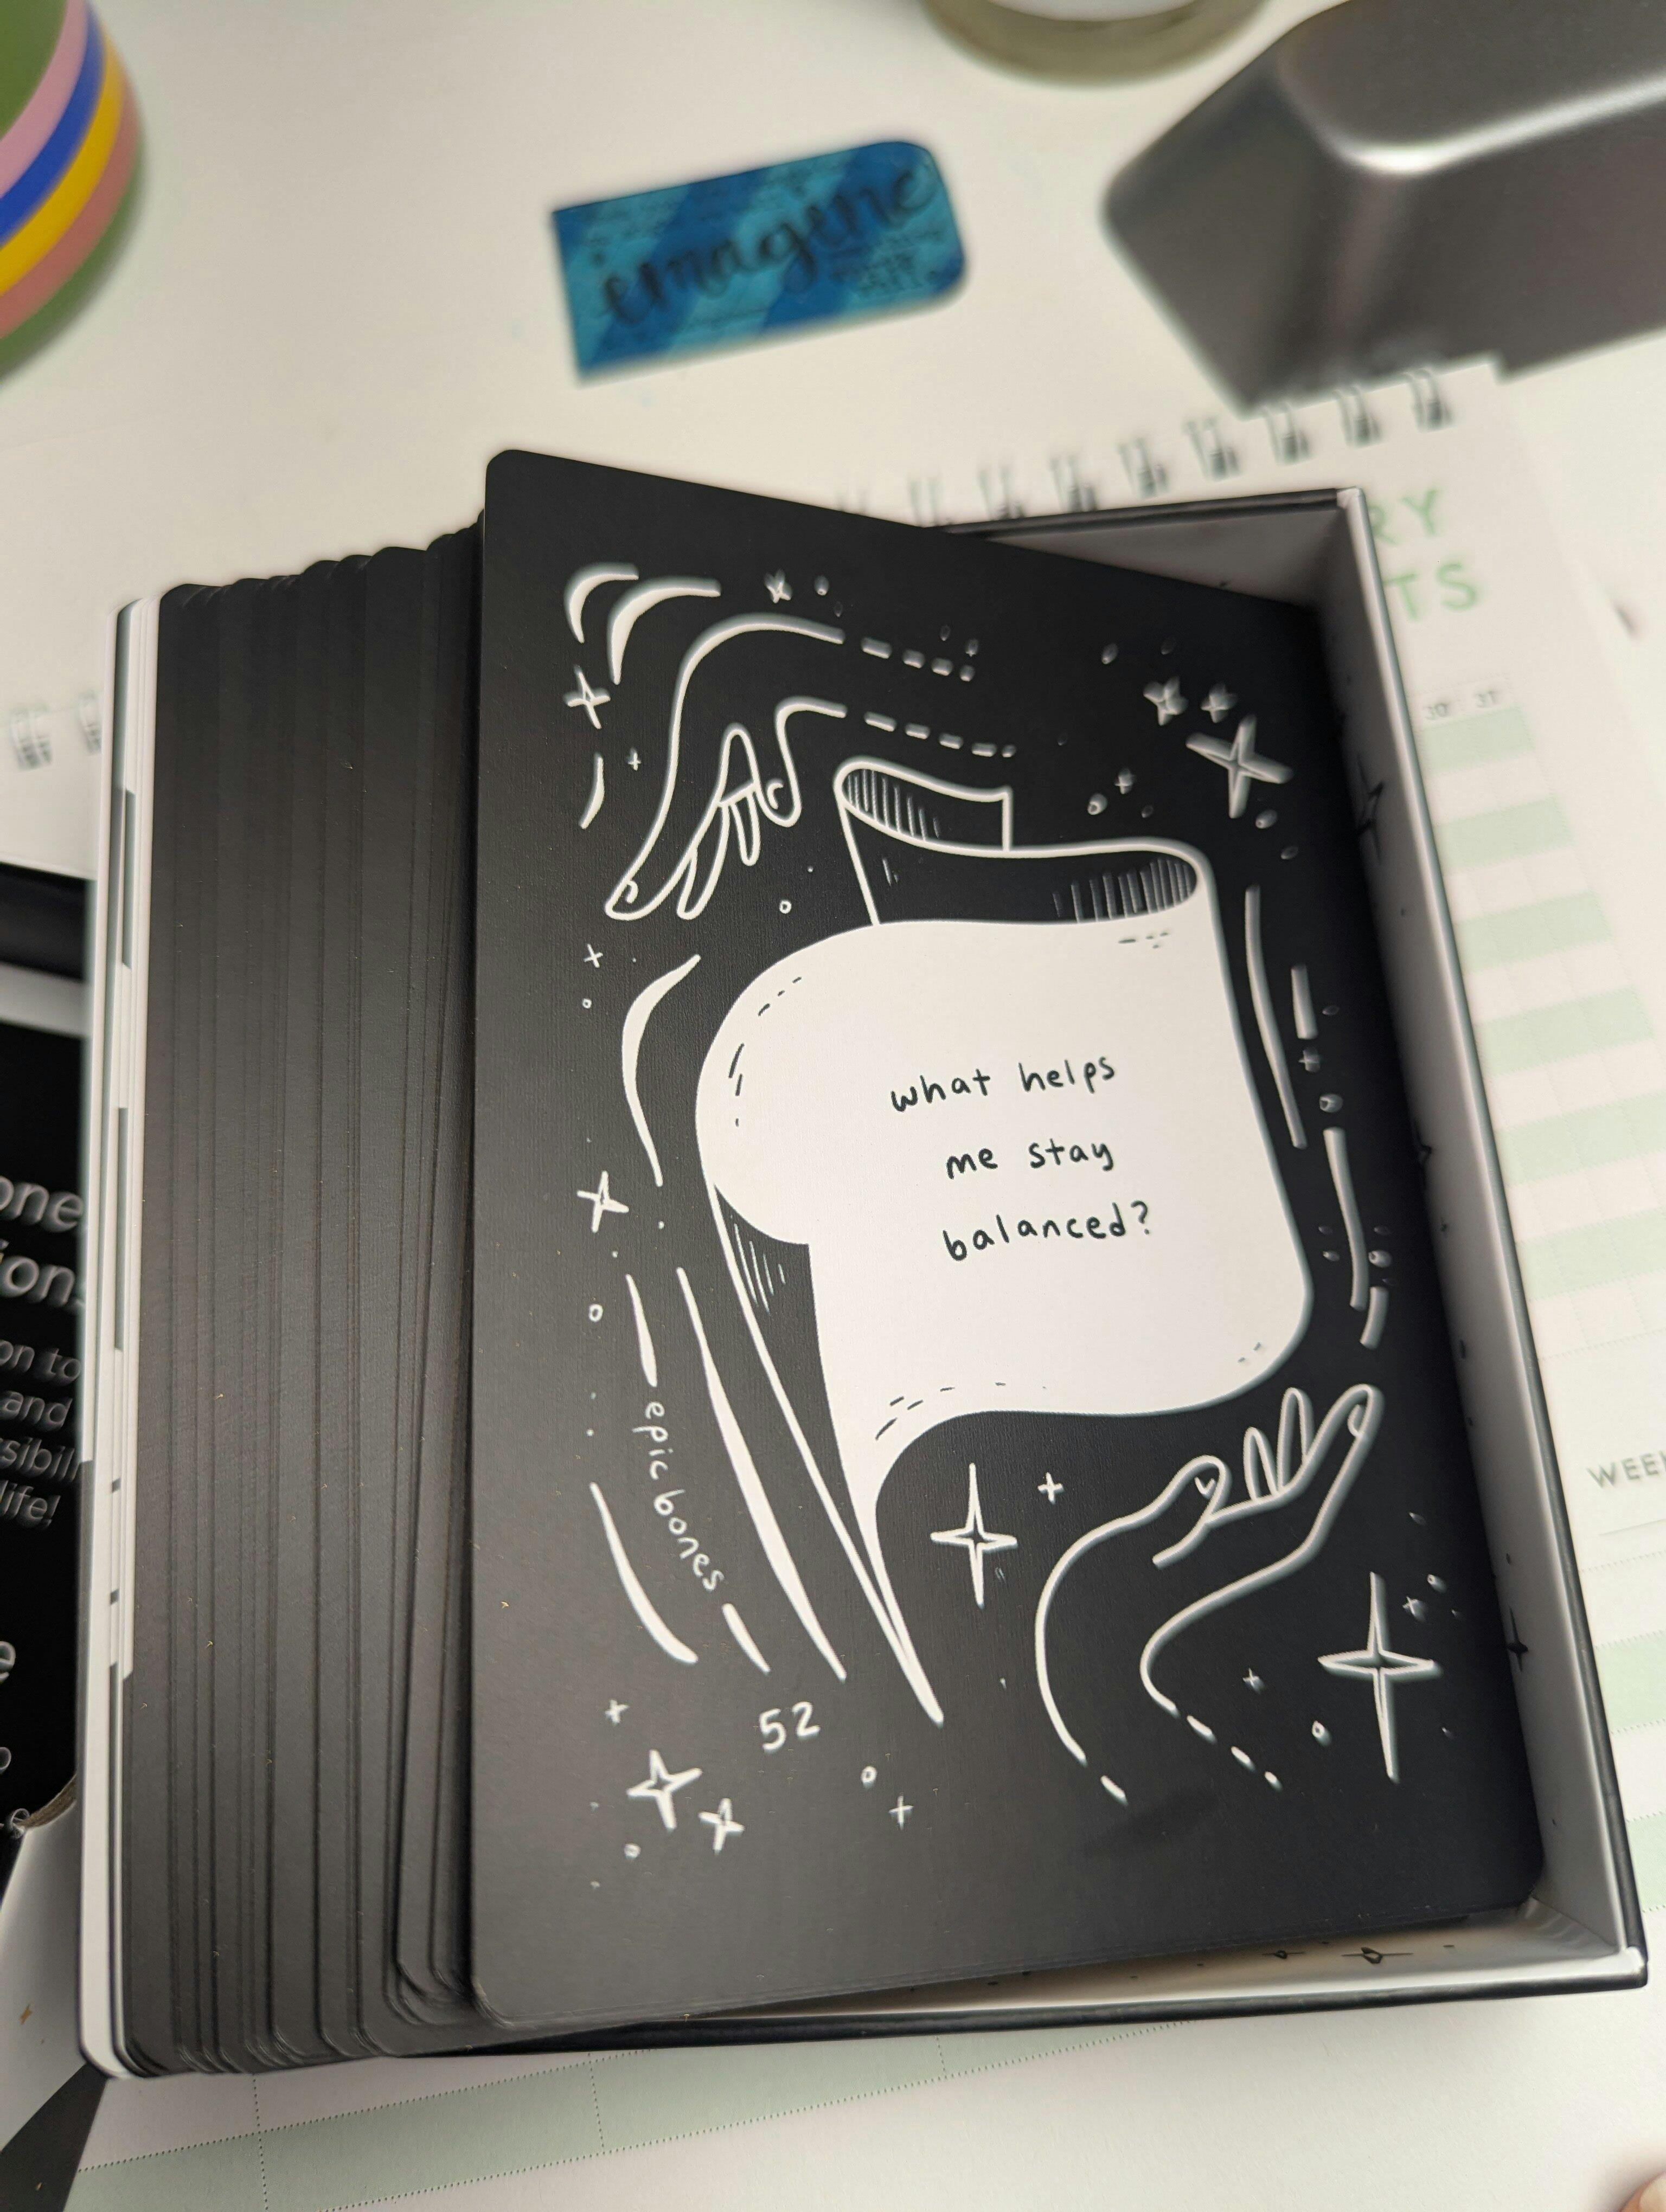 imagine
RY
TS
30 31
what helps
me stay
balanced?
epic bones
52
one
ion
on to
and
ssibili
life!
e
WEE